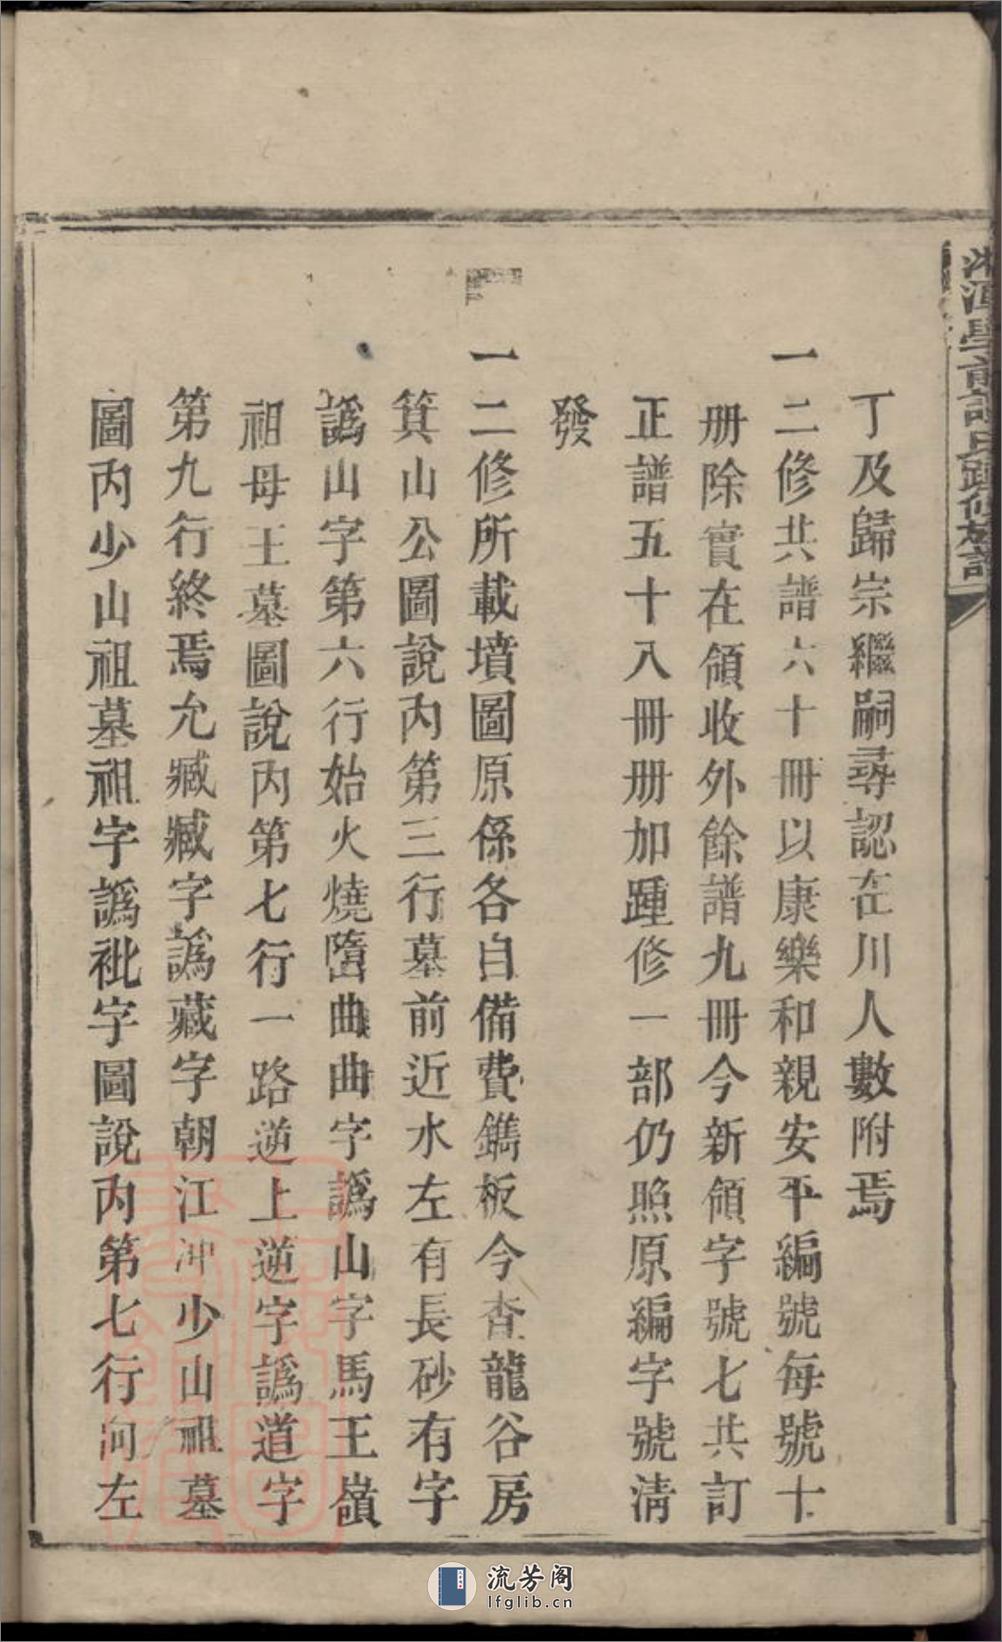 丁及歸宗繼嗣尋認在川人數附焉
一二修共譜六十冊以康樂和親安平編號每號十
册除實在領收外餘譜九冊今新領字號七共訂
正譜五十八冊册加踵修一部仍照原編字號淸
發
一二修所載墳圖原係各自備費鐫板今査龍谷房
箕山公圖說內第三行墓前近水左有長砂有字
譌山字第六行始火燒窩曲曲字譌山字馬王嶺
祖母王墓圖說內第七行一路逆上逆字譌道字
第九行終焉允臧臧字譌藏字朝江冲少山祖墓
圖內少山祖墓祖字譌䘣字圖說內第七行河左
流芳阁
lfglib.cn